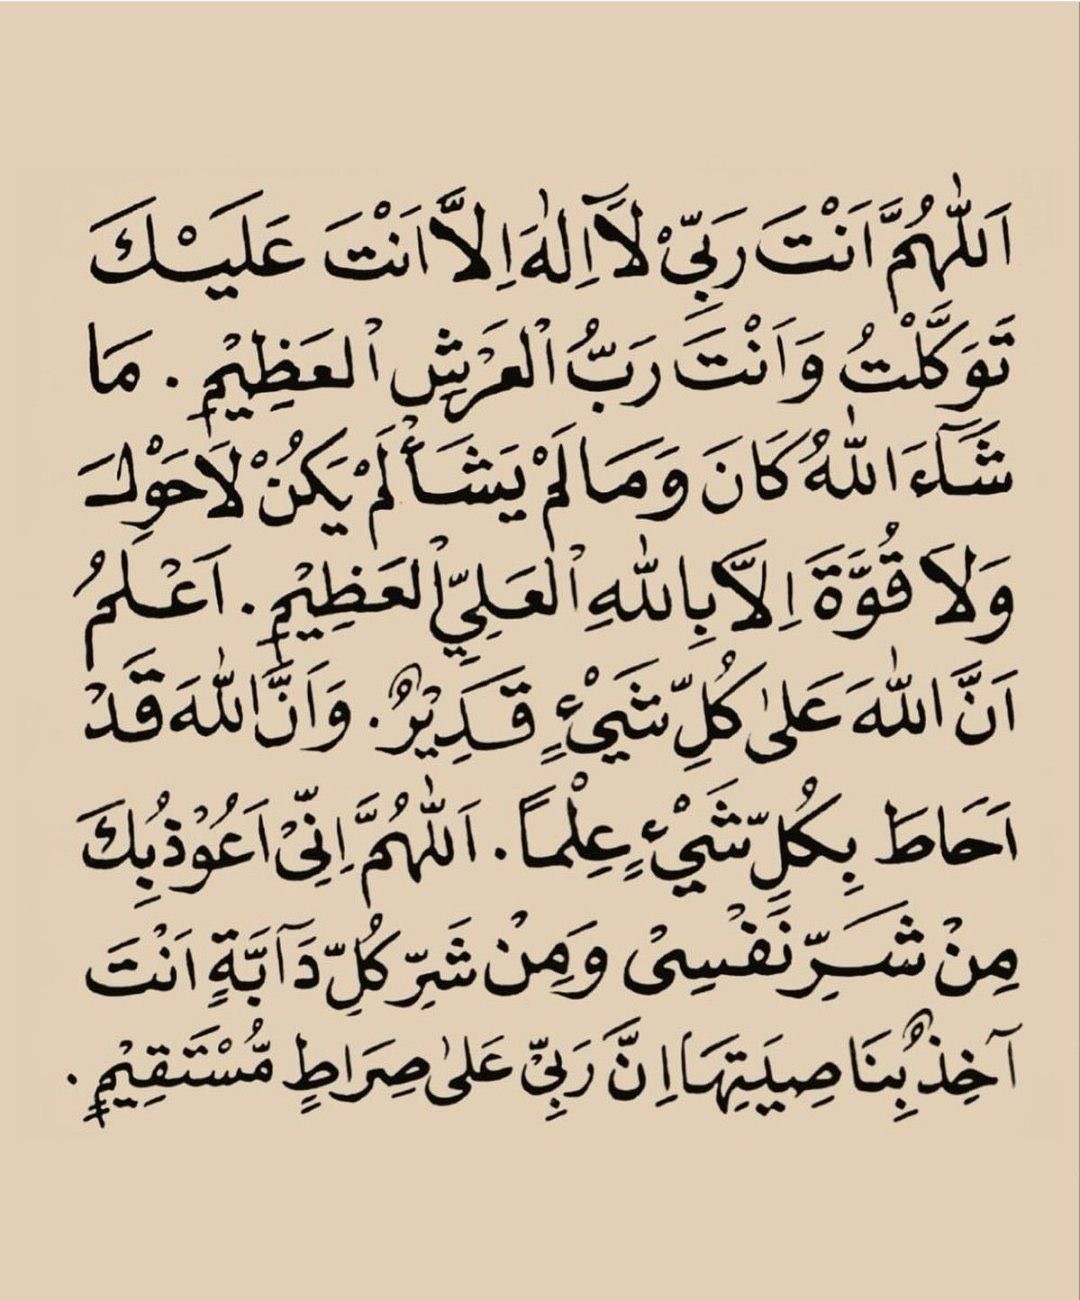 اَللّٰهُمَّ اَنْتَ رَبِّيْ لَآ اِلٰهَ اِلَّا اَنْتَ عَلَيْكَ
تَوَكَّلْتُ وَاَنْتَ رَبُّ الْعَرْشِ الْعَظِيْمِ . مَا
شَآءَ اللّٰهُ كَانَ وَمَا لَمْ يَشَأْ لَمْ يَكُنْ لَا حَوْلَ
وَلَا قُوَّةَ اِلَّا بِاللّٰهِ الْعَلِيِّ الْعَظِيْمِ . اَعْلَمُ
اَنَّ اللّٰهَ عَلٰى كُلِّ شَيْءٍ قَدِيْرٌ . وَاَنَّ اللّٰهَ قَدْ
اَحَاطَ بِكُلِّ شَيْءٍ عِلْمًا . اَللّٰهُمَّ اِنِّىْ اَعُوْذُ بِكَ
مِنْ شَرِّ نَفْسِىْ وَمِنْ شَرِّ كُلِّ دَآبَّةٍ اَنْتَ
آخِذٌ بِنَاصِيَتِهَا اِنَّ رَبِّيْ عَلٰى صِرَاطٍ مُّسْتَقِيْمٍ .